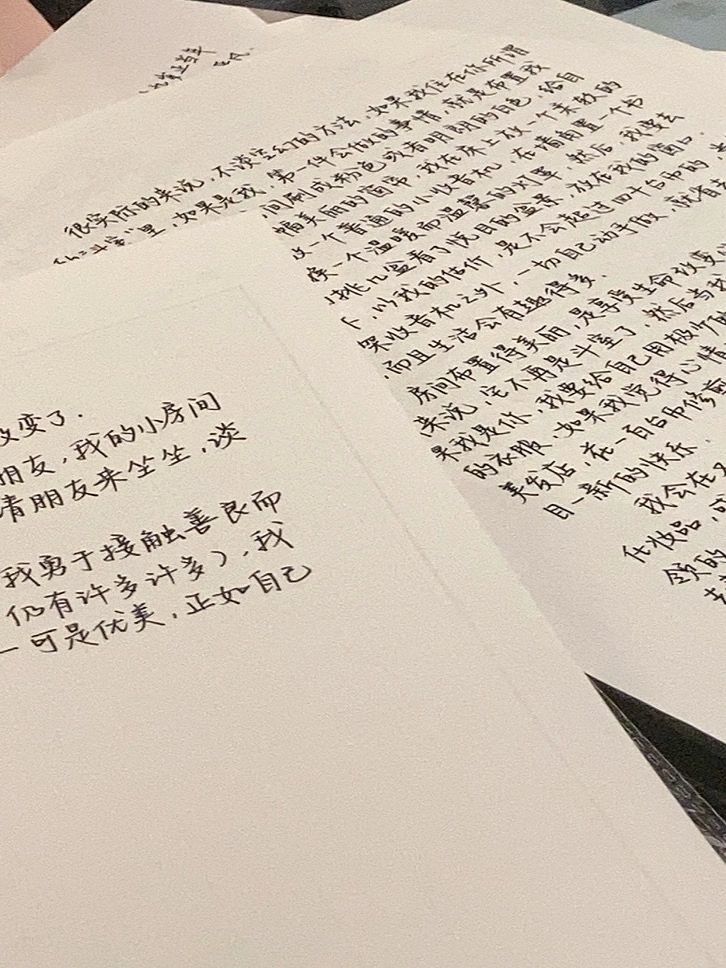 很实际的来说，不谈空幻的方法，如果我住在你所谓
"斗室"里，如果是我，第一件会做的事情，就是布置我
间刷成粉色或者明朗的白色，给自
幅美丽的窗帘，我在床上放一个柔软的
一个普通的小收音机，在墙角置一个书
换一个温暖而温馨的灯罩，然后，我要去
挑几盆看了悦目的盆景，放在我的窗口。
以我的估价，是不会超过四十台币的，
收音机之外，一切自己动手做，就省
，而且生活会有趣得多。
房间布置得美丽，是享受生命改变
来说，它不再是斗室了，然后
果我是你，我要给自己用极少的
的衣服，如果我觉得心情
美发店，在一百台币修剪
目一新的快乐。
我会在
化妆品，
领的
改变了。
朋友，我的小房间
请朋友来坐坐，谈
我勇于接触善良而
仍有许多许多），我
一可是优美，正如自己